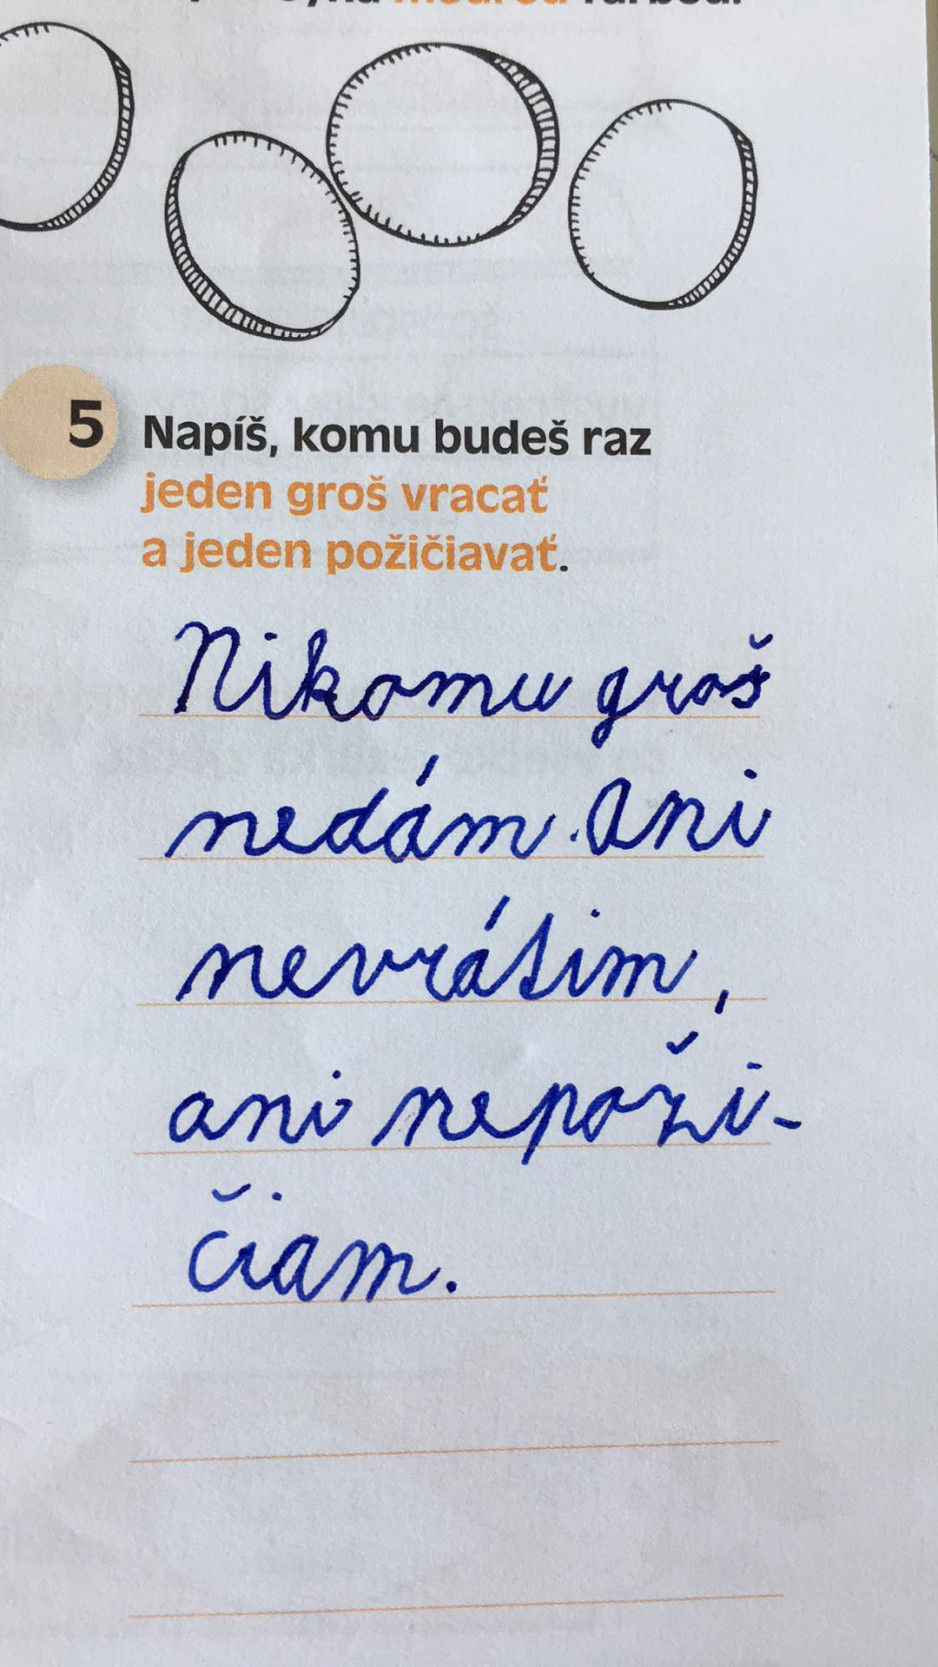 modrou farbou.
5 Napíš, komu budeš raz
jeden groš vracať
a jeden požičiavať.
Nikomu groš
nedám. Ani
nevrátim,
ani nepoži-
čiam.